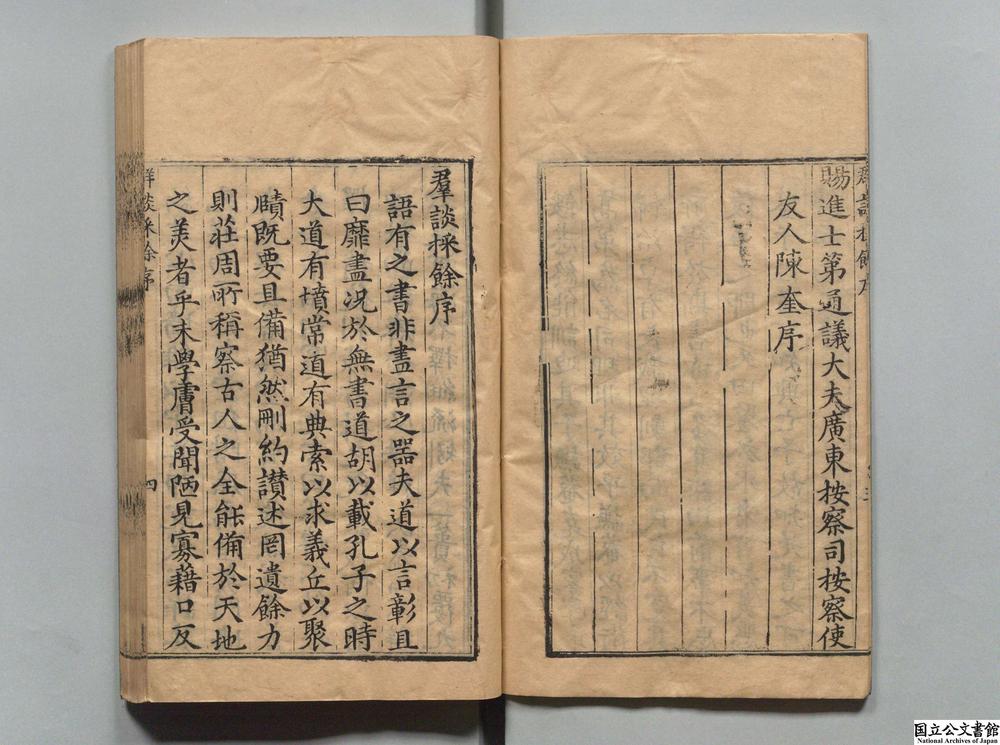 賜進士第通議大夫廣東按察司按察使
友人陳奎序
羣談採餘序
語有之書非盡言之器夫道以言彰且
曰靡盡况於無書道胡以載孔子之時
大道有墳常道有典索以求義丘以聚
賾既要且備猶然刪約讃述罔遺餘力
則莊周所稱察古人之全能備於天地
之羙者乎末學膚受聞陋見寡藉口反
群談採餘序
四
国立公文書館
National Archives of Japan